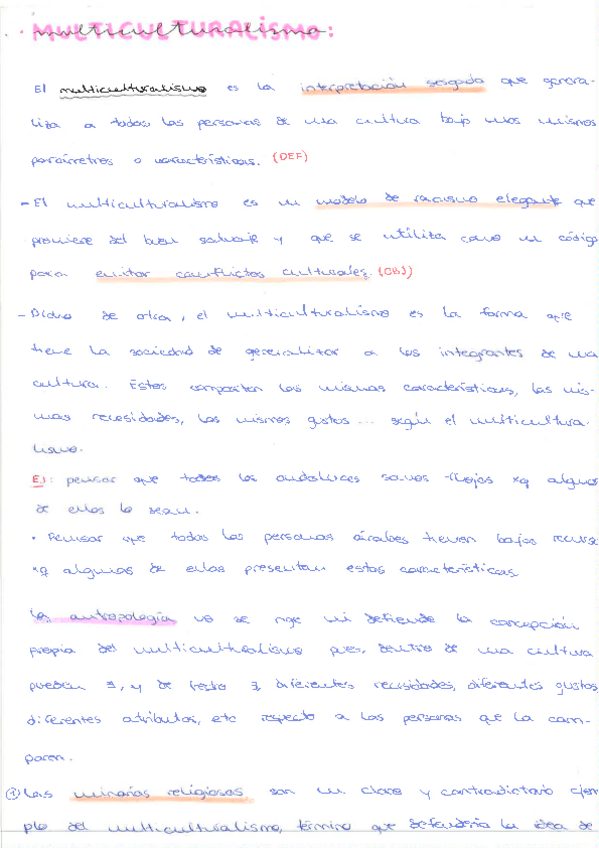 · MULTICULTURALISMO:
El multiculturalismo es la interpretación sesgada que genera-
liza a todas las personas de una cultura bajo unos mismos
parámetros o características. (DEF)
- El multiculturalismo es un modelo de racismo elegante que
proviene del buen salvaje y que se utiliza como un código
para evitar conflictos culturales. (OBJ)
- Dicho de otra, el multiculturalismo es la forma que
tiene la sociedad de generalizar a los integrantes de una
cultura. Estos comparten las mismas características, las mis-
mas necesidades, los mismos gustos... según el multicultura-
lismo.
EJ: pensar que todos los andaluces somos flojos xq algunos
de ellos lo sean.
· Pensar que todas las personas árabes tienen bajos recurso
xq algunas de ellas presentan estas características
La antropología no se rige ni defiende la concepción
propia del multiculturalismo pues, dentro de una cultura
pueden ∃, y de hecho ∃, diferentes necesidades, diferentes gustos,
diferentes atributos, etc respecto a las personas que la com-
paren.
① Las minorías religiosas, son un claro y contradictorio ejem
plo del multiculturalismo, término que defendería la idea de